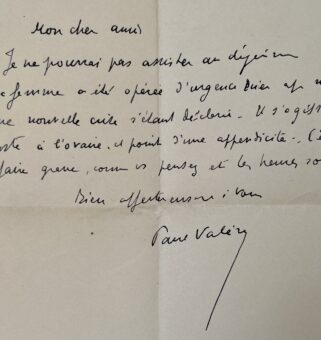 Mon cher ami
Je ne pourrai pas assister au déjeuner
femme a été opérée d'urgence hier ap m
ne nouvelle crise s'étant déclarée. Il s'agiss
à l'ovaire, et point d'une appendicite. C'e
faire grave, comme vs pensez et les heures so
Bien affectueusement à vous
Paul Valéry